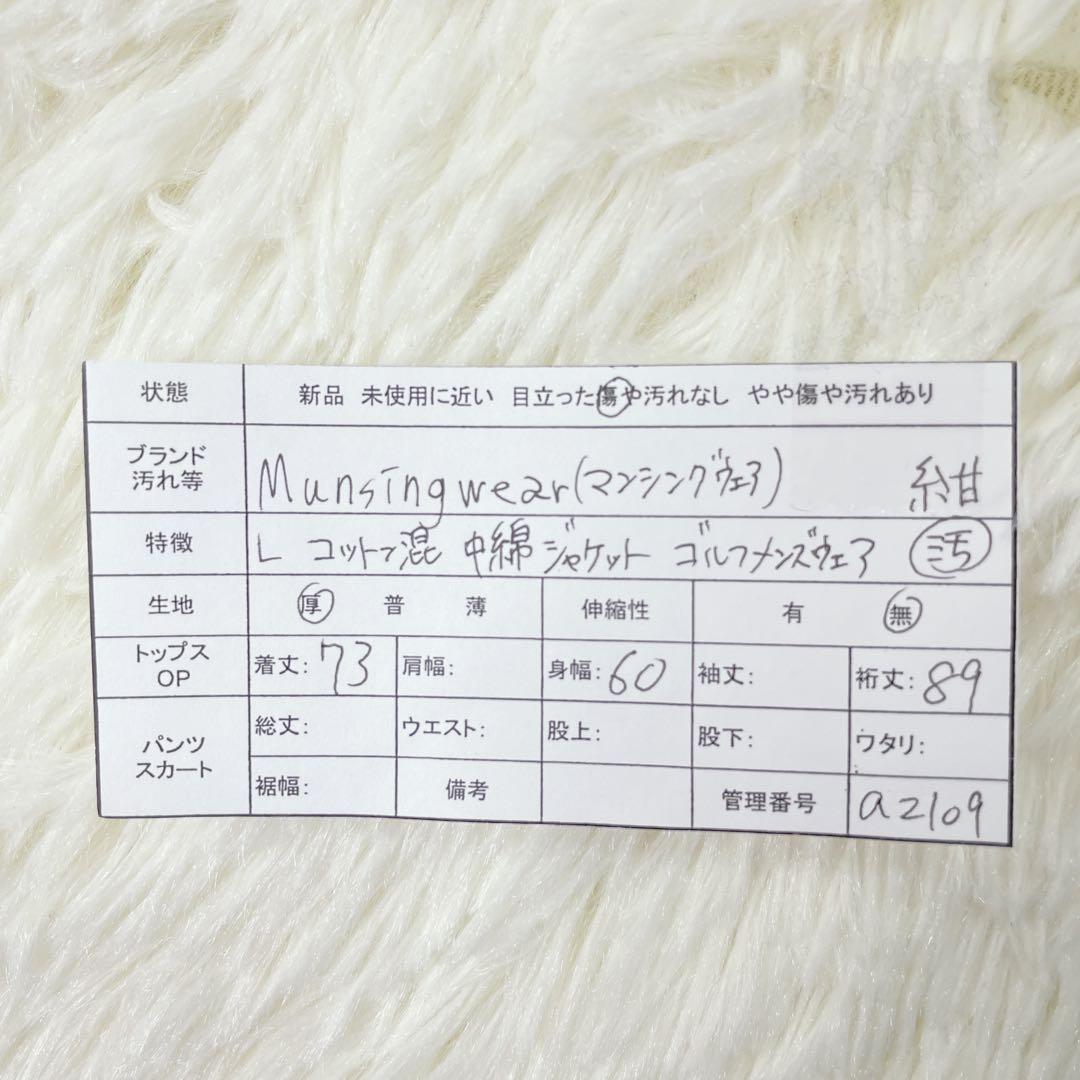 状態 新品 未使用に近い 目立った傷や汚れなし やや傷や汚れあり
ブランド 汚れ等 Munsingwear(マンシングウェア) 紺
特徴 L コットン混 中綿ジャケット ゴルフメンズウェア 汚
生地 厚 普 薄 伸縮性 有 無
トップス OP 着丈: 73 肩幅: 身幅: 60 袖丈: 裄丈: 89
パンツ スカート 総丈: ウエスト: 股上: 股下: ワタリ:
裾幅: 備考 管理番号 a2109